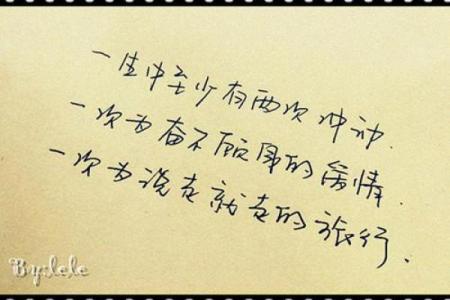 一生中至少有两次冲动.
一次为奋不顾身的爱情.
一次为说走就走的旅行.
By:lele